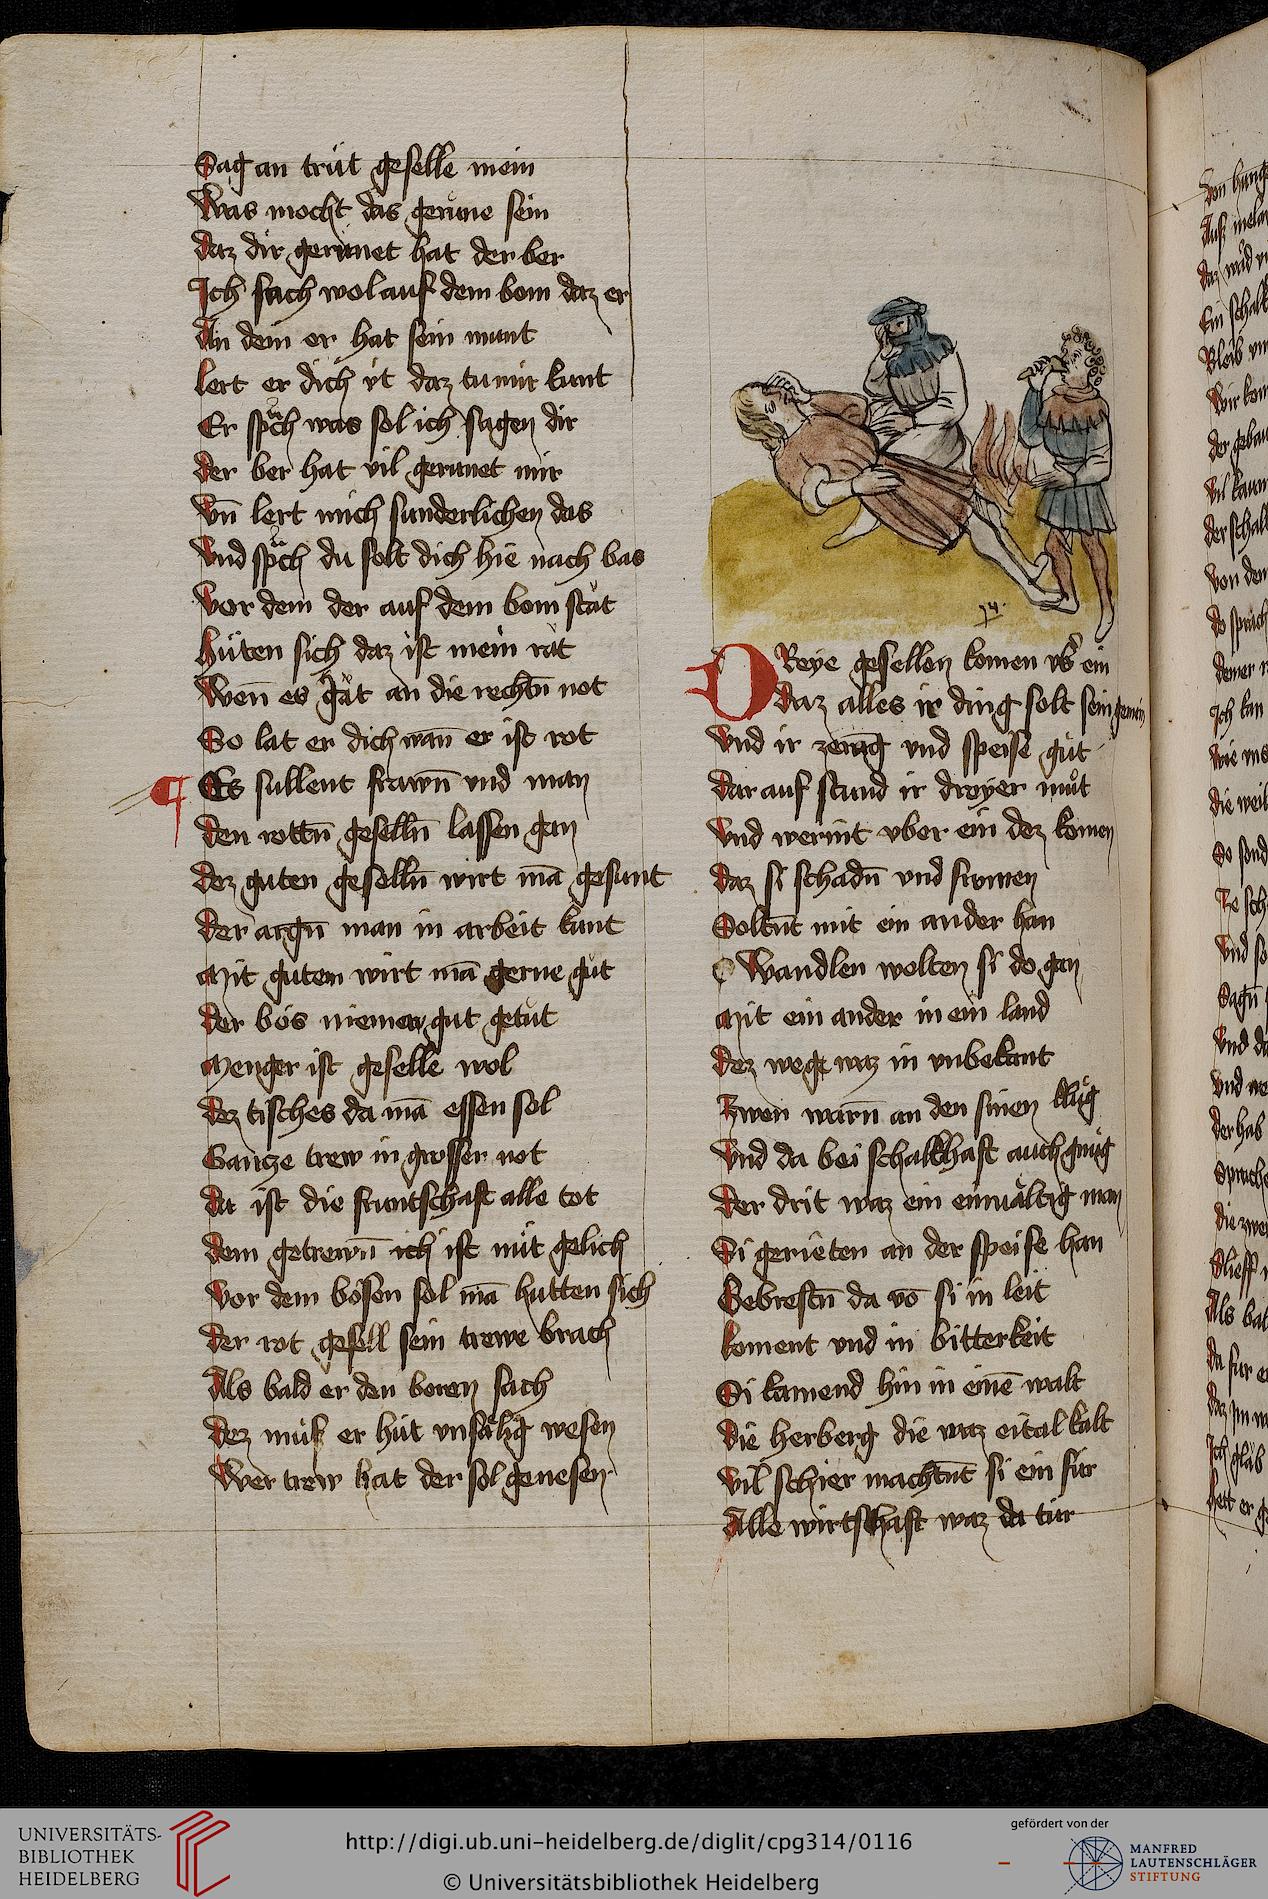 Sag an trut geselle mein
Was mocht das gerune sein
daz dir gerunet hat der ber
Ich sach wol auf dem bom daz er
An dein or hat sein munt
lert er dich it daz tu mir kunt
Er spͣch was sol ich sagen dir
der ber hat vil gerunet mir
Vn̄ lert mich sunderlichen das
Vnd spͣch du solt dich hie nach bas
Vor dem der auf dem bom stat
hüten sich daz ist mein rat
Wen̄ es gat an die rechtn̄ not
So lat er dich wan̄ er ist rot
¶ Es sullent frawn̄ vnd man
den rottn̄ geselln̄ lassen gan
dez guten geselln̄ wirt mā gesunt
der argn̄ man in arbeit kunt
Mit gutem wirt mā gerne gůt
der bös niemen gut getůt
Menger ist geselle wol
dez tisches da mā essen sol
Gantze trew in grosser not
da ist die fruntschaft alle tot
dem getrewn̄ ich ist nüt gelich
Vor dem bösen sol mā hutten sich
der rot gesell sein trewe brach
Als bald er den beren sach
dez můs er hüt vnsälig wesen
Wer trew hat der sol genesen
DReye gesellen komen vb̛ ein
daz alles ir ding solt sein gemein
Vnd ir zerūg vnd speise gůt
dar auf stund ir dreyer můt
Vnd wernt vber ein dez komen
daz si schadn̄ vnd frumen
Soltn̄t mit ein ander han
Wandlen wolten si do gan
Mit ein ander in ein land
dez wege waz in vnbekant
Zwen warn̄ an den sinen klůg
Vnd da bei schalkhaft auch gnůg
der drit waz ein einuältig man
Si gerieten an der speise han
Gebrestn̄ da vō si in leit
koment vnd in bitterkeit
Si kamend hin in einē walt
die herberg die waz eital kalt
Vil schier machtn̄t si ein für
Alle wirtschaft waz da tür
UNIVERSITÄTS-
BIBLIOTHEK
HEIDELBERG
http://digi.ub.uni-heidelberg.de/diglit/cpg314/0116
© Universitätsbibliothek Heidelberg
gefördert von der
MANFRED
LAUTENSCHLÄGER
STIFTUNG